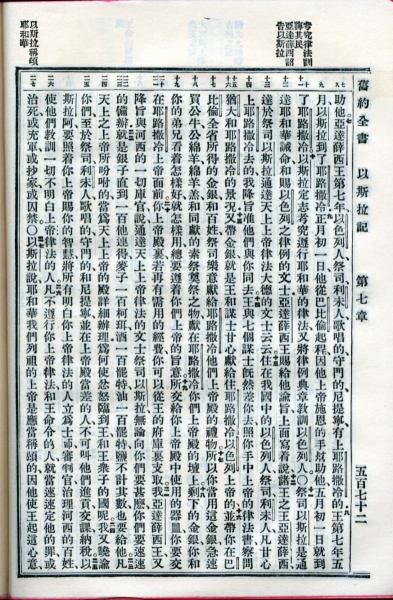 舊約全書 以斯拉記 第七章 五百七十二
考究律法訓
誨其民
亞達薛西詔
告以斯拉
助他亞達薛西王第七年以色列人祭司利未人歌唱的守門的尼提寧有上耶路撒冷的王第七年五
月以斯拉到了耶路撒冷正月初一日他從巴比倫起程因他上帝施恩的手幫助他五月初一日就到
了耶路撒冷以斯拉定志考究遵行耶和華的律法又將律例典章敎訓以色列人○祭司以斯拉是通
達耶和華誡命和賜以色列之律例的文士亞達薛西王賜給他諭旨上面寫着說諸王之王亞達薛西
達於祭司以斯拉通達天上上帝律法大德的文士云云住在我國中的以色列人祭司利未人凡甘心
上耶路撒冷去的我降旨准他們與你同去王與七個謀士旣然差你去照你手中上帝的律法書察問
猶大和耶路撒冷的景況又帶金銀就是王和謀士甘心獻給住耶路撒冷以色列上帝的並帶你在巴
比倫全省所得的金銀和百姓祭司樂意獻給耶路撒冷他們上帝殿的禮物所以你當用這金銀急速
買公牛公綿羊綿羊羔和同獻的素祭奠祭之物獻在耶路撒冷你們上帝殿的壇上剩下的金銀你和
你的弟兄看着怎樣好就怎樣用總要遵着你們上帝的旨意所交給你上帝殿中使用的器皿你要交
在耶路撒冷上帝面前你上帝殿裏若再有需用的經費你可以從王的府庫裏支取我亞達薛西王又
降旨與河西的一切庫官說通達天上上帝律法的文士祭司以斯拉無論向你們要甚麽你們要速速
的備辦就是銀子直到一百他連得麥子一百柯珥酒一百罷特油一百罷特鹽不計其數也要給他凡
天上之上帝所吩咐的當爲天上上帝的殿詳細辦理爲何使忿怒臨到王和王衆子的國呢我又曉諭
你們至於祭司利未人歌唱的守門的和尼提寧並在上帝殿當差的人不可叫他們進貢交課納稅以
斯拉阿要照着你上帝賜你的智慧將所有明白你上帝律法的人立爲士師審判官治理河西的百姓
使他們敎訓一切不明白上帝律法的人凡不遵行你上帝律法和王命令的人就當速速定他的罪或
治死或充軍或抄家或囚禁○以斯拉說耶和華我們列祖的上帝是應當稱頌的因他使王起這心意
以斯拉稱頌
耶和華